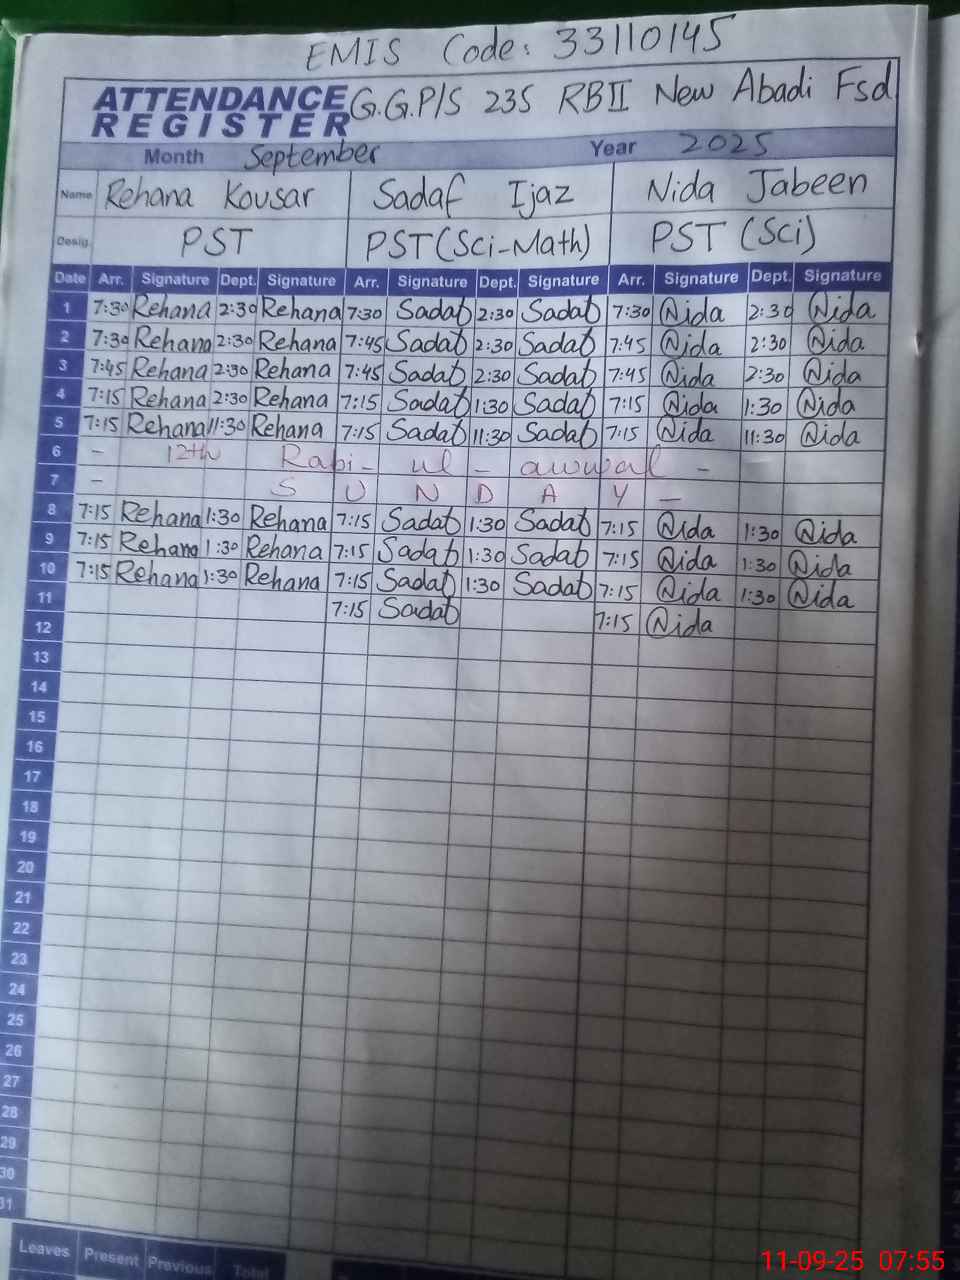 EMIS Code: 33110145
ATTENDANCE REGISTER G.G.P/S 235 RBII New Abadi Fsd
Month September Year 2025
Name Rehana Kousar Sadaf Ijaz Nida Jabeen
Desig. PST PST(Sci-Math) PST (Sci)
Date Arr. Signature Dept. Signature Arr. Signature Dept. Signature Arr. Signature Dept. Signature
1 7:30 Rehana 2:30 Rehana 7:30 Sadaf 2:30 Sadaf 7:30 Nida 2:30 Nida
2 7:30 Rehana 2:30 Rehana 7:45 Sadaf 2:30 Sadaf 7:45 Nida 2:30 Nida
3 7:45 Rehana 2:30 Rehana 7:45 Sadaf 2:30 Sadaf 7:45 Nida 2:30 Nida
4 7:15 Rehana 2:30 Rehana 7:15 Sadaf 1:30 Sadaf 7:15 Nida 1:30 Nida
5 7:15 Rehana 11:30 Rehana 7:15 Sadaf 11:30 Sadaf 7:15 Nida 11:30 Nida
6 - 12th Rabi - ul - awwal -
7 - S U N D A Y -
8 7:15 Rehana 1:30 Rehana 7:15 Sadaf 1:30 Sadaf 7:15 Nida 1:30 Nida
9 7:15 Rehana 1:30 Rehana 7:15 Sadaf 1:30 Sadaf 7:15 Nida 1:30 Nida
10 7:15 Rehana 1:30 Rehana 7:15 Sadaf 1:30 Sadaf 7:15 Nida 1:30 Nida
11 7:15 Sadaf 7:15 Nida
12
13
14
15
16
17
18
19
20
21
22
23
24
25
26
27
28
29
30
31
Leaves Present Previous Total
11-09-25 07:55